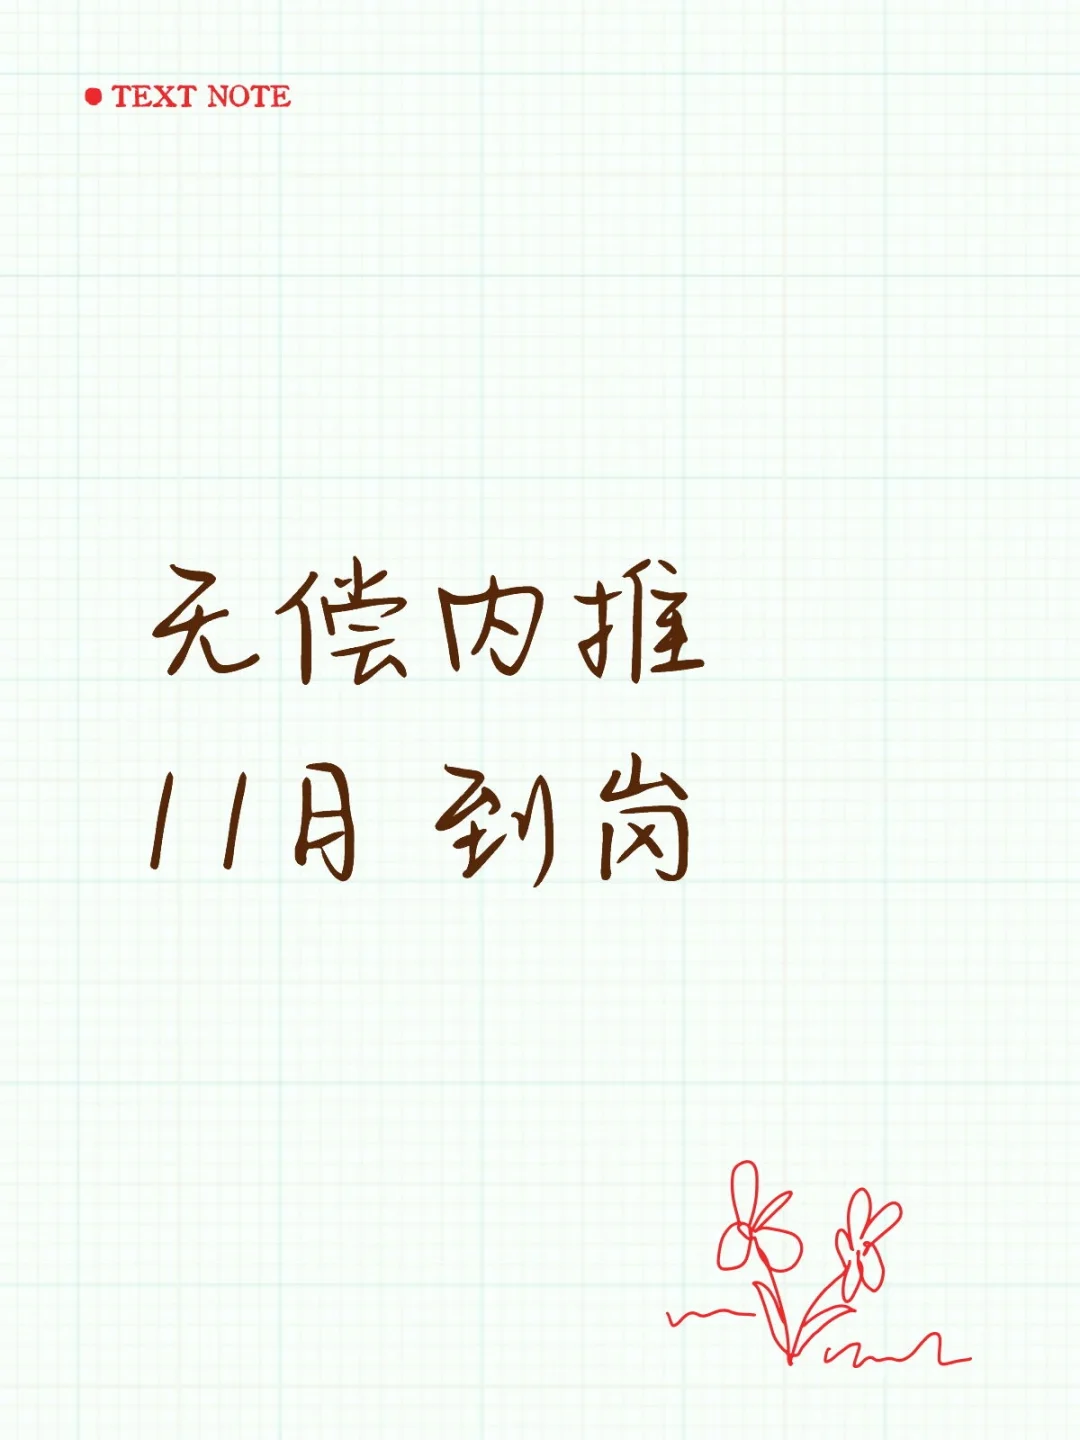 TEXT NOTE
无偿内推
11月 到岗